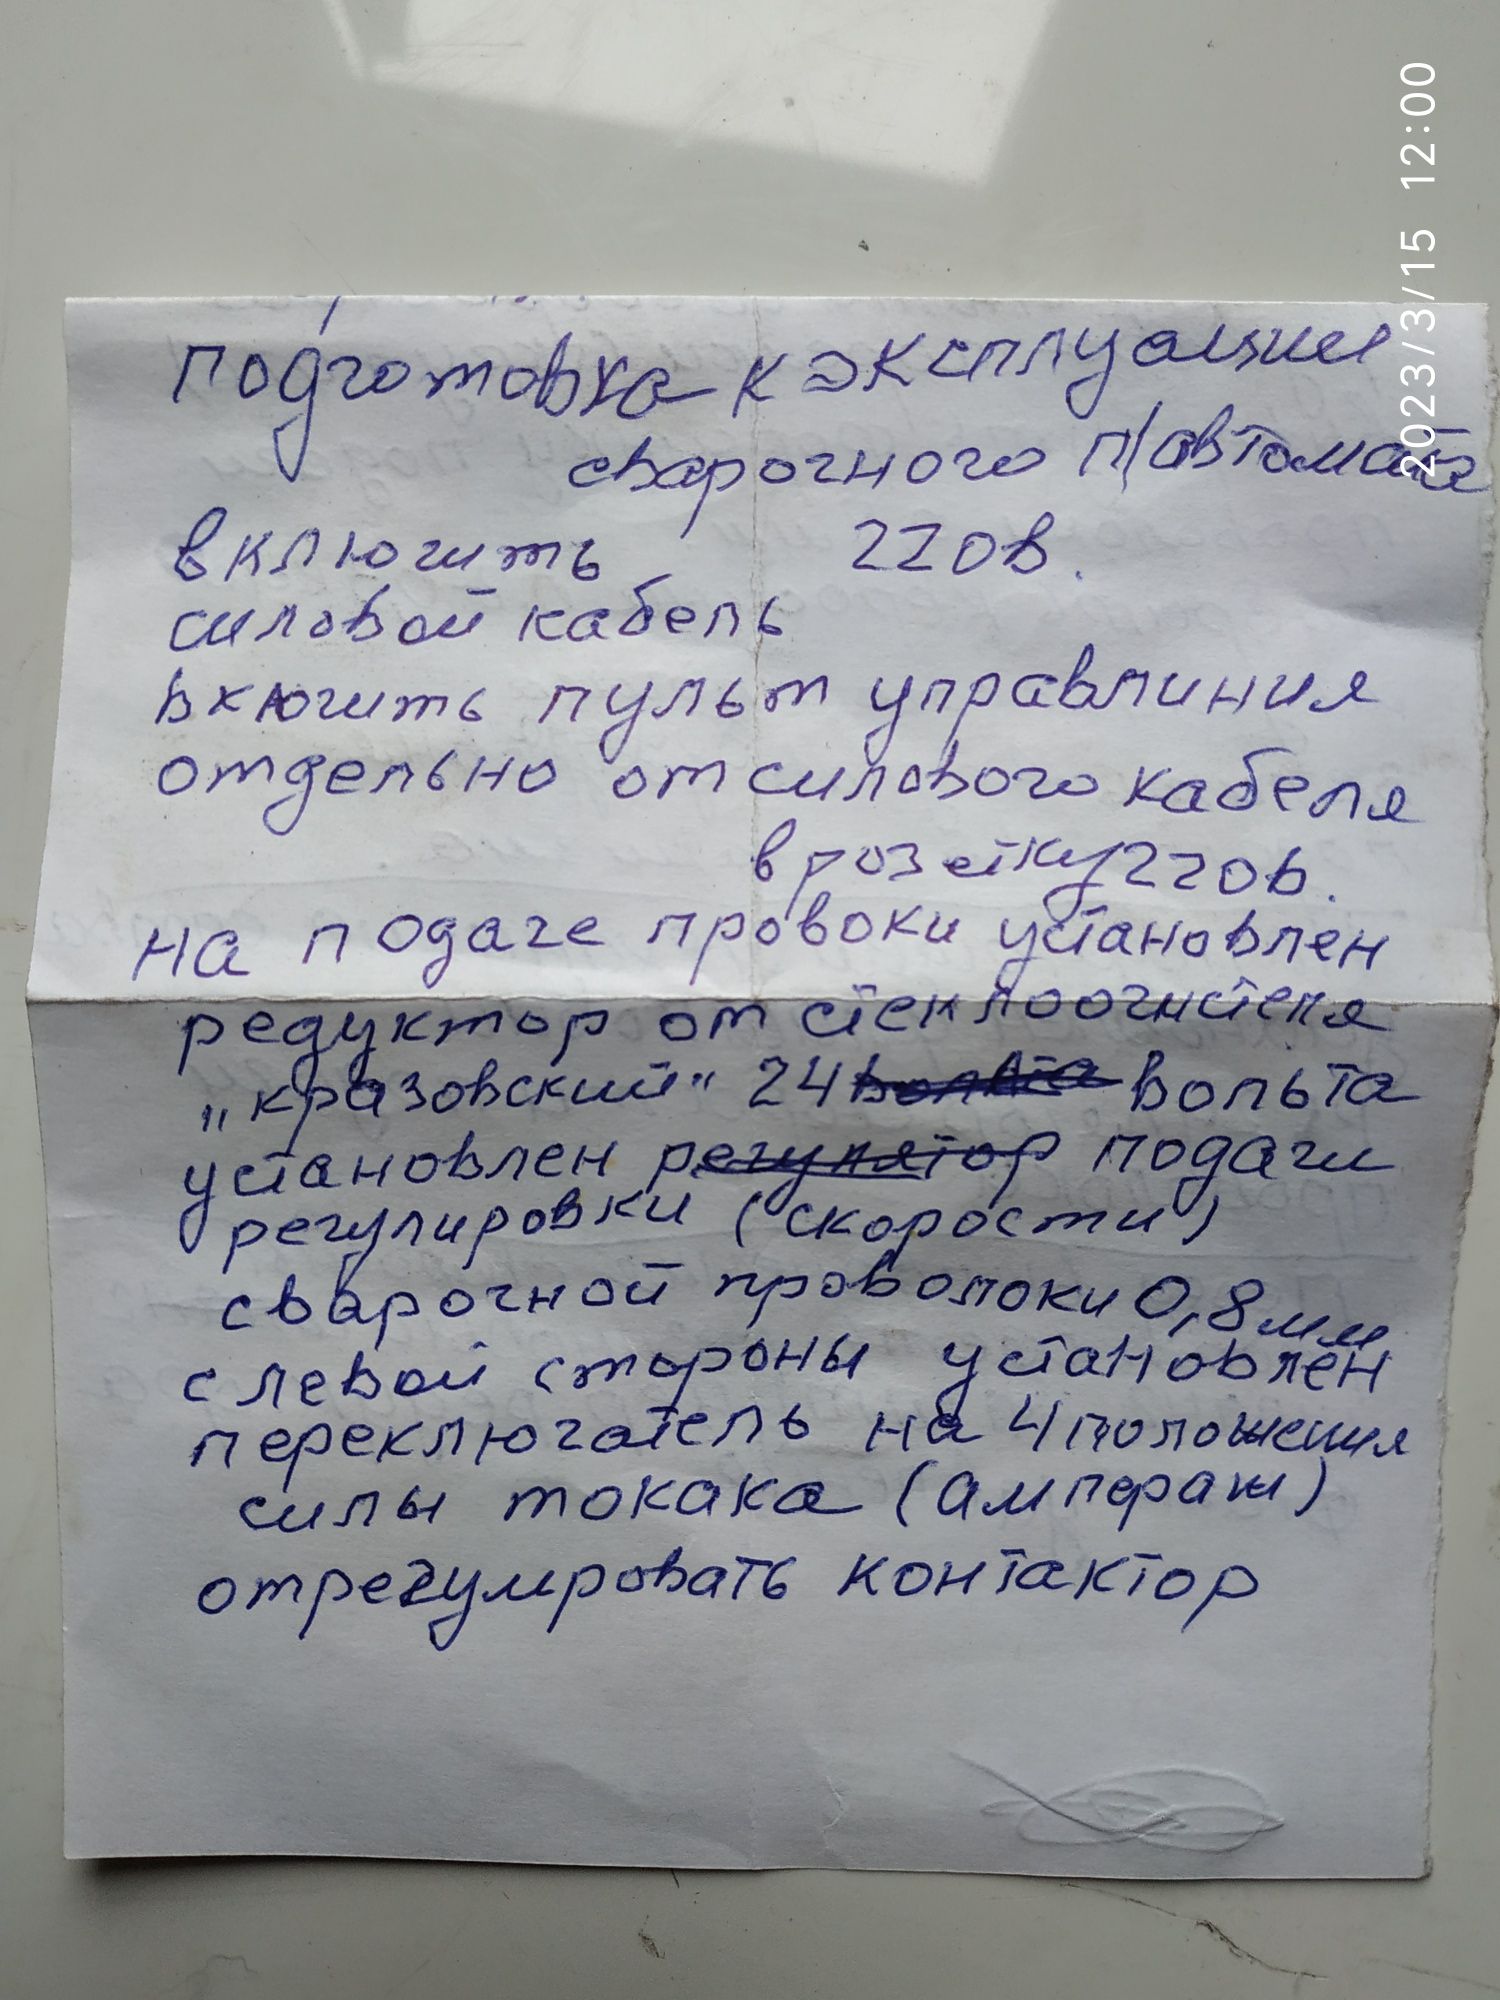 подготовка к эксплуации
сварочного п/автомата
включить 220в.
силовой кабель
вкючить пульт управлиния
отдельно от силового кабеля
в розетку 220в.
на подаче провоки установлен
редуктор от стеклоочистеля
„кразовский" 24 вольта вольта
установлен регулятор подачи
регулировки (скорости)
сварочной проволоки 0,8мм
с левой стороны установлен
переключатель на 4 положения
силы токака (ампераж)
отрегулировать контактор
2023/3/15 12:00